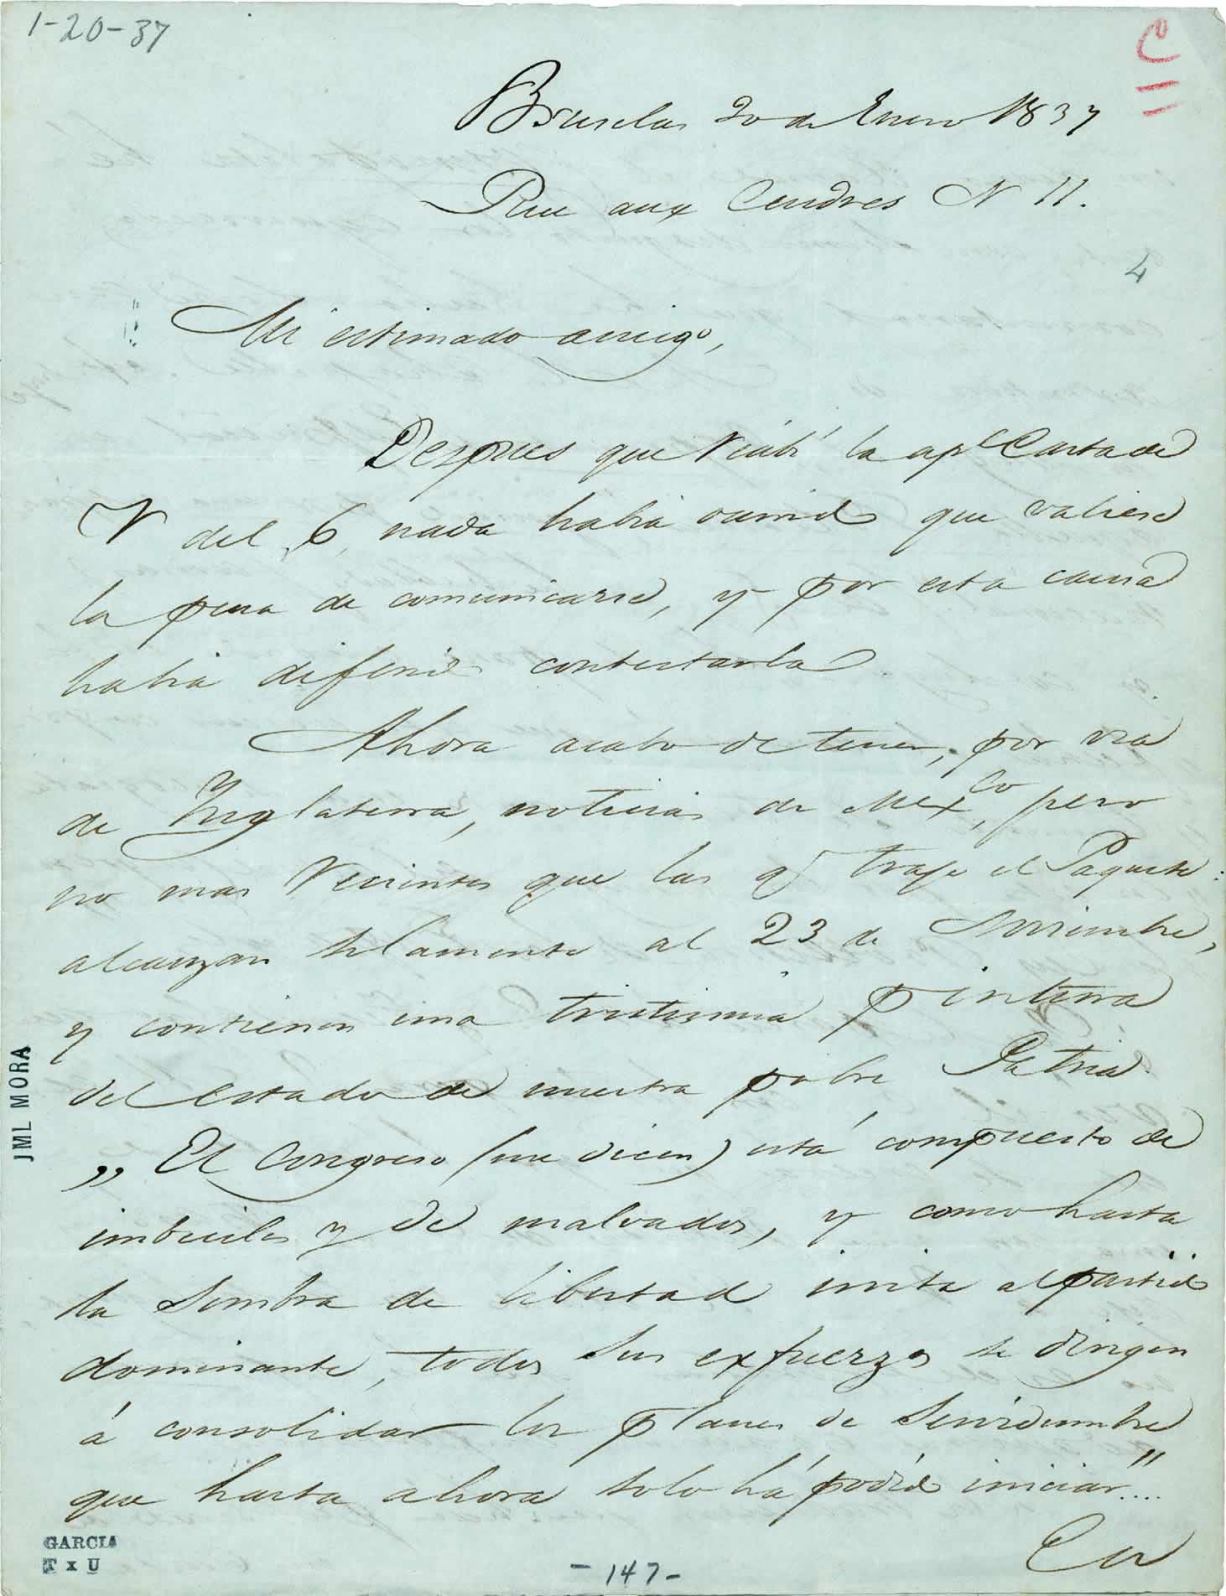 1-20-37
C
Bruselas 20 de Enero 1837
Rue aux Cendres N 11.
4
Mi estimado amigo,
Despues que recibí la ap.e Carta de
V del 6, nada habia ocurrido que valiese
la pena de comunicarse, y por esta causa
habia diferido contestarla.
Ahora acabo de tener, por via
de Inglaterra, noticias de Mexco, pero
no mas recientes que las q trajo el Paquete:
alcanzan solamente al 23 de Noviembre,
y contienen una tristisima pintura
del estado de nuestra pobre Patria.
„ El Congreso (me dicen) está compuesto de
imbeciles y de malvados, y como hasta
la sombra de libertad irrita al partido
dominante, todos sus exfuerzos se dirigen
á consolidar los planes de servidumbre
que hasta ahora solo há podido iniciar...."
En
JML MORA
GARCIA
T x U
-147-